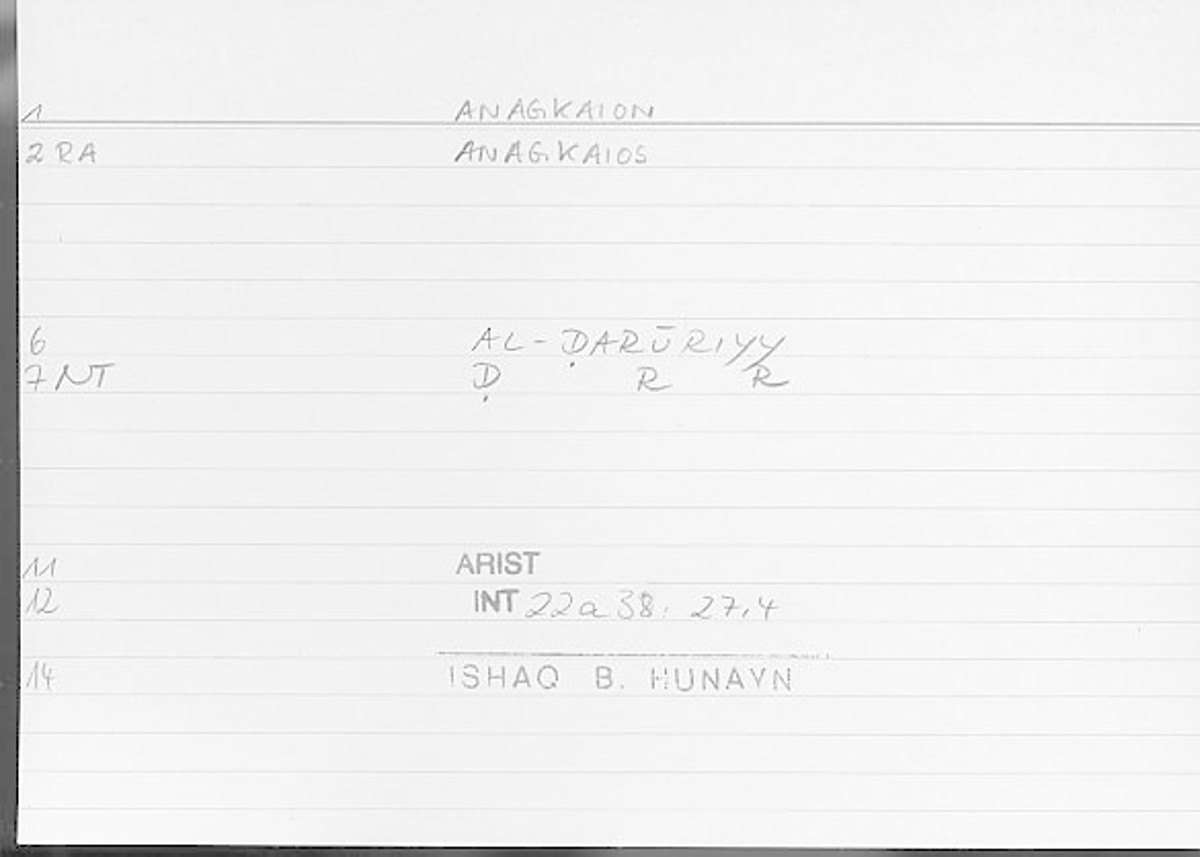 1 ANAGKAION
2 RA ANAGKAIOS
6 AL-ḌARŪRIYY
7 NT Ḍ R R
11 ARIST
12 INT 22a38: 27,4
14 ISHAQ B. HUNAYN